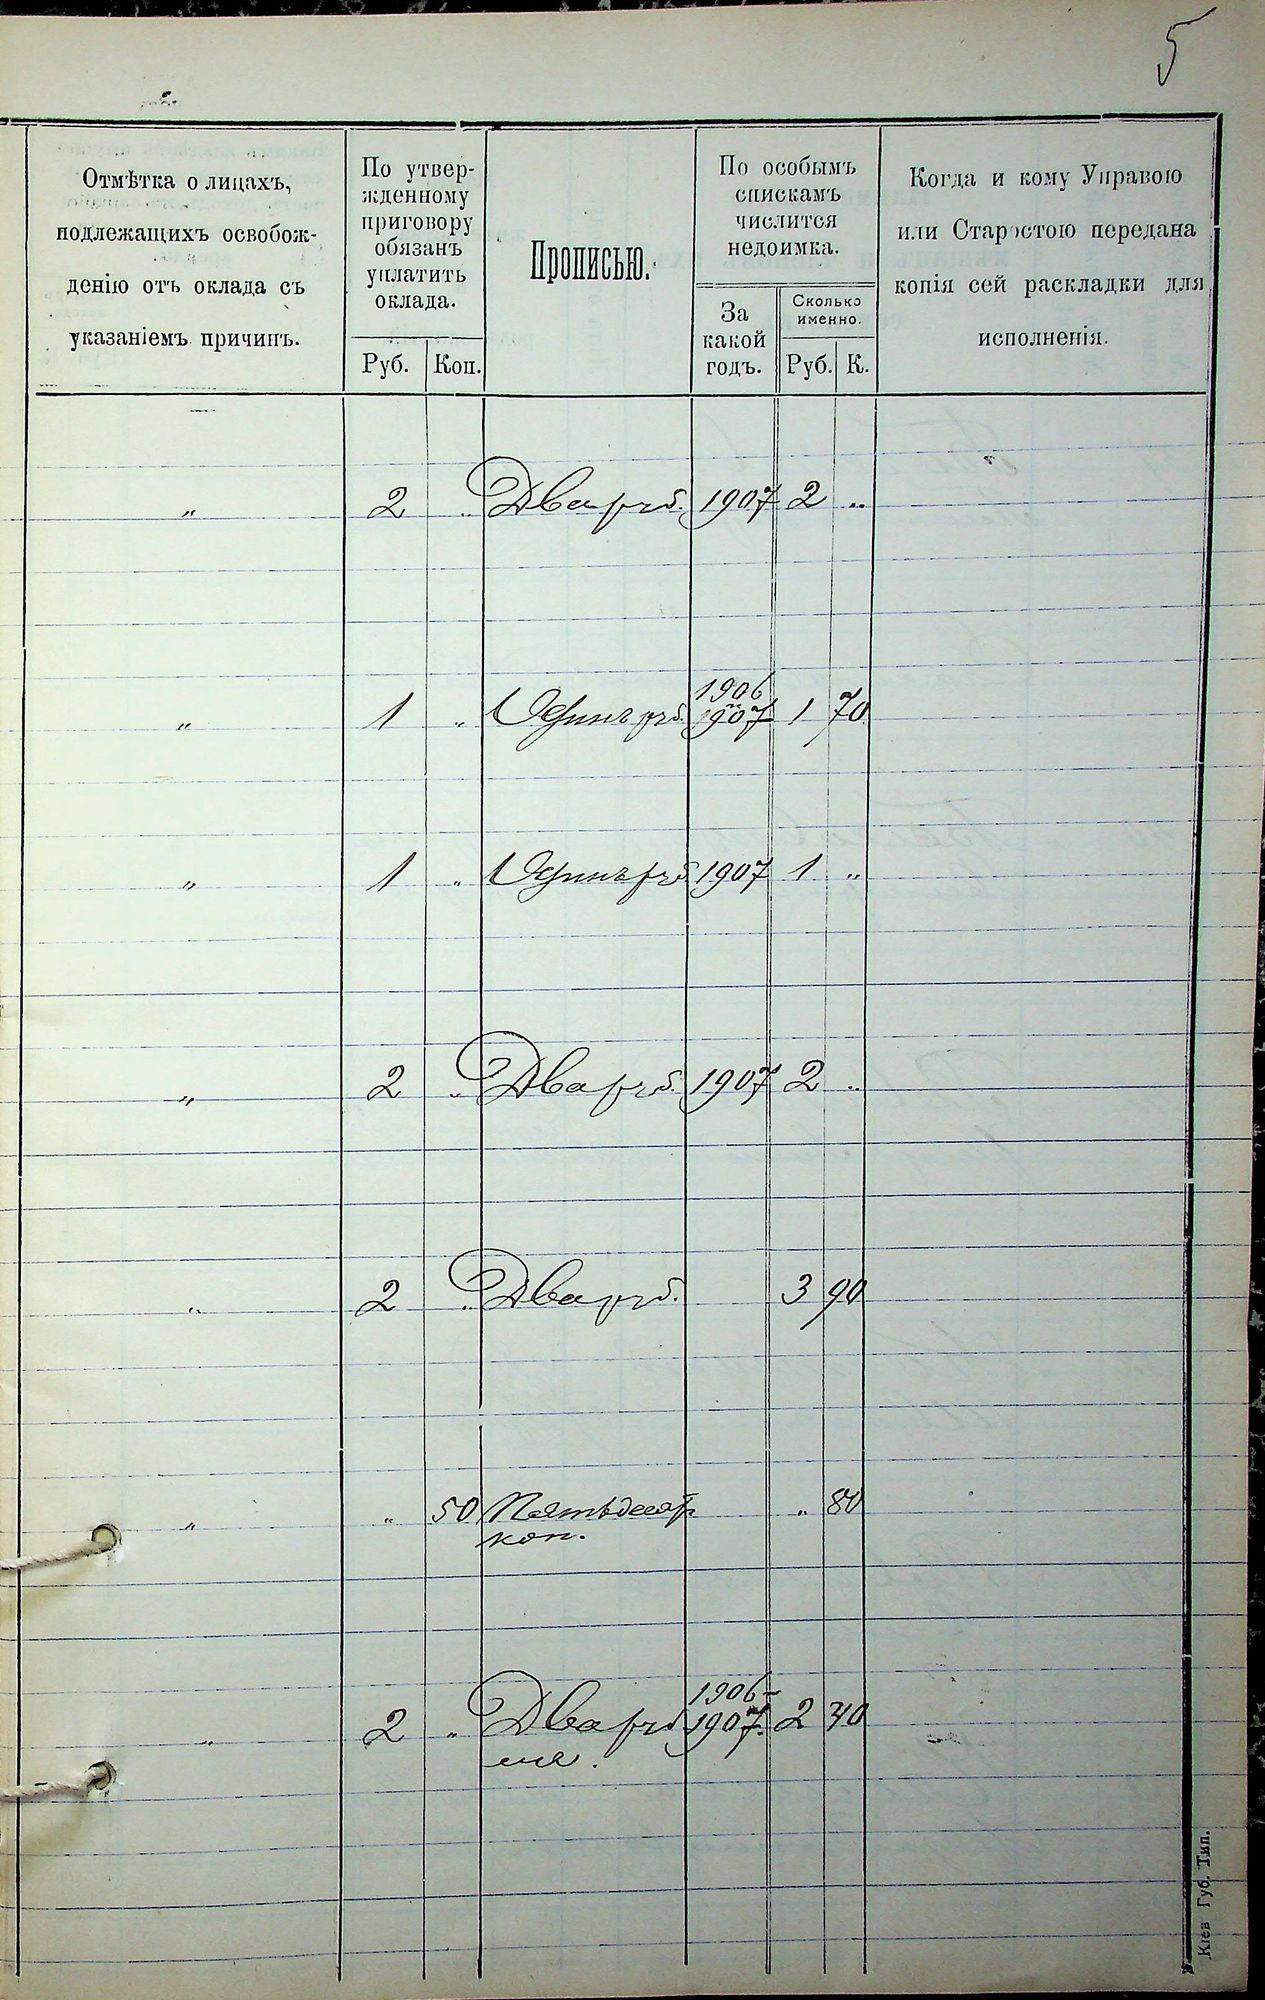 5
Отмѣтка о лицахъ,
подлежащихъ освобож-
денію отъ оклада съ
указаніемъ причинъ.
По утвер-
жденному
приговору
обязанъ
уплатить
оклада.
Руб. Коп.
Прописью.
По особымъ
спискамъ
числится
недоимка.
За
какой
годъ.
Сколько
именно.
Руб. К.
Когда и кому Управою
или Старостою передана
копія сей раскладки для
исполненія.
„ 2 „ Два руб. 1907 2 „
1906
„ 1 „ Одинъ руб. 1907 1 70
„ 1 „ Одинъ руб. 1907 1 „
„ 2 „ Два руб. 1907 2 „
„ 2 „ Два руб. 3 90
„ „ 50 Пятьдесят „ 80
коп.
1906-
„ 2 „ Два руб 1907. 2 40
ля.
Кіев Губ. Тип.